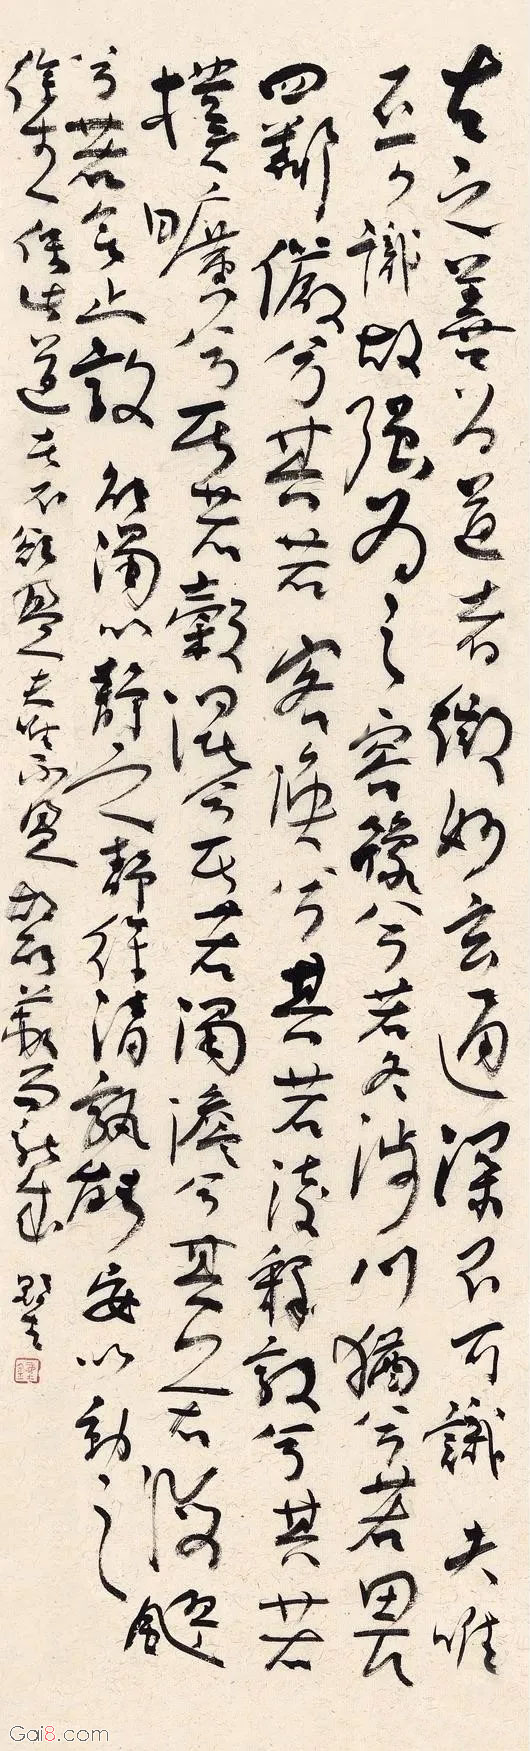 古之善为道者微妙玄通深不可識夫唯
不可識故强为之容豫兮若冬涉川猶兮若畏
四鄰儼兮其若客渙兮其若淩釋敦兮其若
撲曠兮其若穀混兮其若濁澹兮其若海飂
兮若無止敦能濁以靜之靜徐清孰能安以動之
徐生保此道者不欲盈夫唯不盈故能蔽而新成
Gai8.com